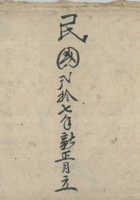 民國〢拾七年新正月立